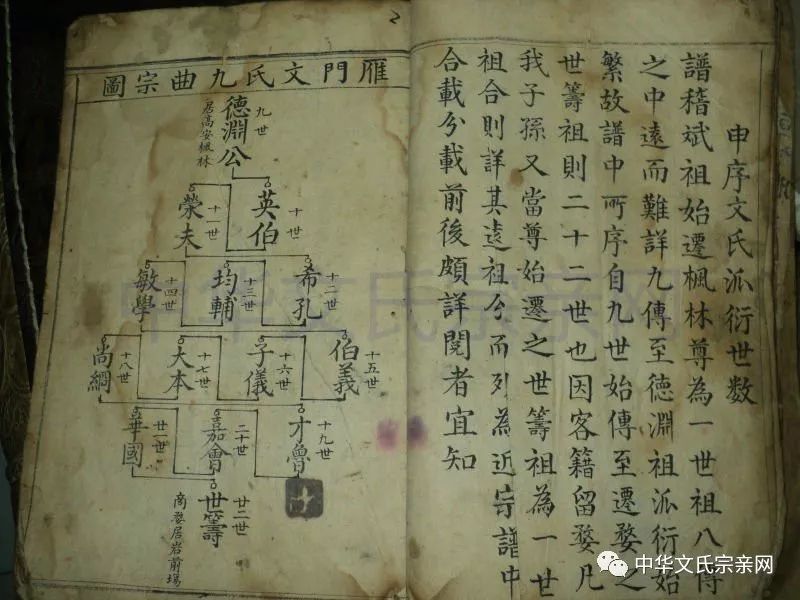 申序文氏派衍世数
譜稽斌祖始遷楓林尊為一世祖八傳
之中遠而難詳九傳至德淵祖派衍始
繁故譜中所序自九世始傳至遷婺之
世籌祖則二十二世也因客籍留婺凡
我子孫又當尊始遷之世籌祖為一世
祖合則詳其遠祖分而列為近宗譜中
合載分載前後頗詳閱者宜知
2
雁門文氏九曲宗圖
九世
德淵公
居高安楓林
十世
英伯
十一世
榮夫
十二世
希孔
十三世
均輔
十四世
敏學
十五世
伯義
十六世
子儀
十七世
大本
十八世
尚綱
十九世
才魯
二十世
嘉會
廿一世
華國
廿二世
世籌
商婺居岩前場
中华文氏宗亲网
中华文氏宗亲网